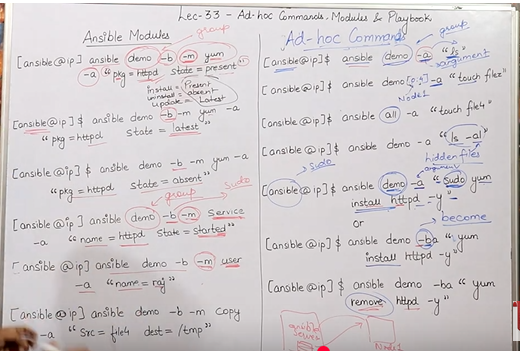 Lec-33 - Ad-hoc Commands, Modules & Playbook
Ansible Modules
group
[ansible@ip] ansible demo -b -m yum
-a "pkg = httpd State = present"
install = Present
uninstall = absent
update = Latest
[ansible@ip] $ ansible demo -b -m yum -a
"pkg = httpd State = latest"
[ansible@ip] $ ansible demo -b -m yum -a
"pkg = httpd State = absent"
group
Sudo
[ansible@ip] ansible demo -b -m Service
-a "name = httpd State = started"
[ansible@ip] ansible demo -b -m user
-a "name = raj"
[ansible@ip] ansible demo -b -m copy
-a "Src = file4 dest = /tmp"
Ad-hoc Commands
group
[ansible@ip]$ ansible demo -a "ls"
argument
[ansible@ip]$ ansible demo[0:4] -a "touch filez"
Node1
[ansible@ip]$ ansible all -a "touch file4"
[ansible@ip]$ ansible demo -a "ls -al"
hidden files
Sudo
argument
[ansible@ip]$ ansible demo -a "sudo yum
install httpd -y"
or
become
[ansible@ip]$ ansible demo -ba "yum
install httpd -y"
[ansible@ip]$ ansible demo -ba "yum
remove httpd -y"
ansible
server
Node1